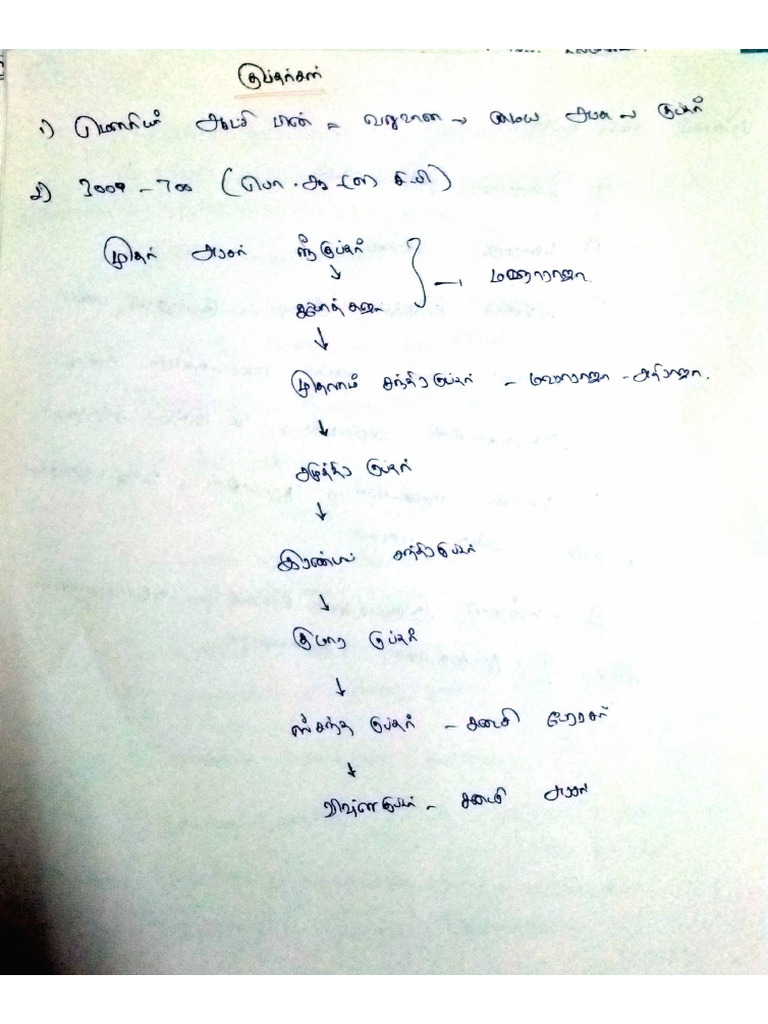 குப்தர்கள்
1) மௌரியர் ஆட்சி பின் = வலுவான → மைய அரசு → குப்தர்
2) 300 - 700 (பொ.ஆ (எ) கி.பி)
முதல் அரசர் ஸ்ரீகுப்தர்
↓ } → மகாராஜா
கடோத்கஜர்
↓
முதலாம் சந்திரகுப்தர் - மகாராஜா - அதிராஜா.
↓
சமுத்திர குப்தர்
↓
இரண்டாம் சந்திரகுப்தர்
↓
குமார குப்தர்
↓
ஸ்கந்த குப்தர் - கடைசி பேரரசர்
↓
விஷ்ணுகுப்தர் - கடைசி அரசர்